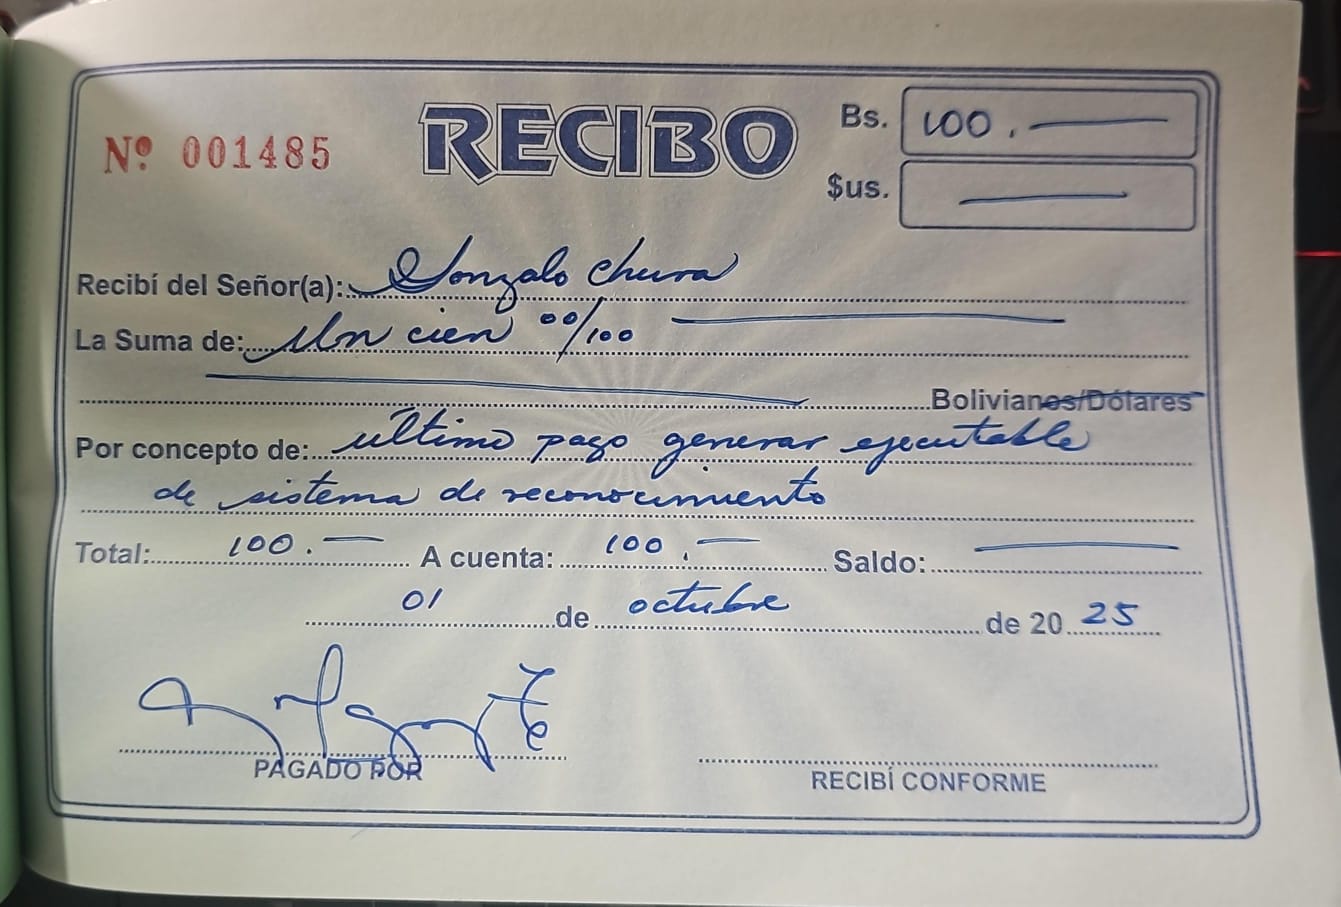 Nº 001485
RECIBO
Bs. 100.
$us.
Recibí del Señor(a): Gonzalo Chura
La Suma de: Un cien 00/100
Bolivianos/Dólares
Por concepto de: último pago generar ejecutable
de sistema de reconocimiento
Total: 100. A cuenta: 100. Saldo:
01 de octubre de 20 25
PAGADO POR
RECIBÍ CONFORME